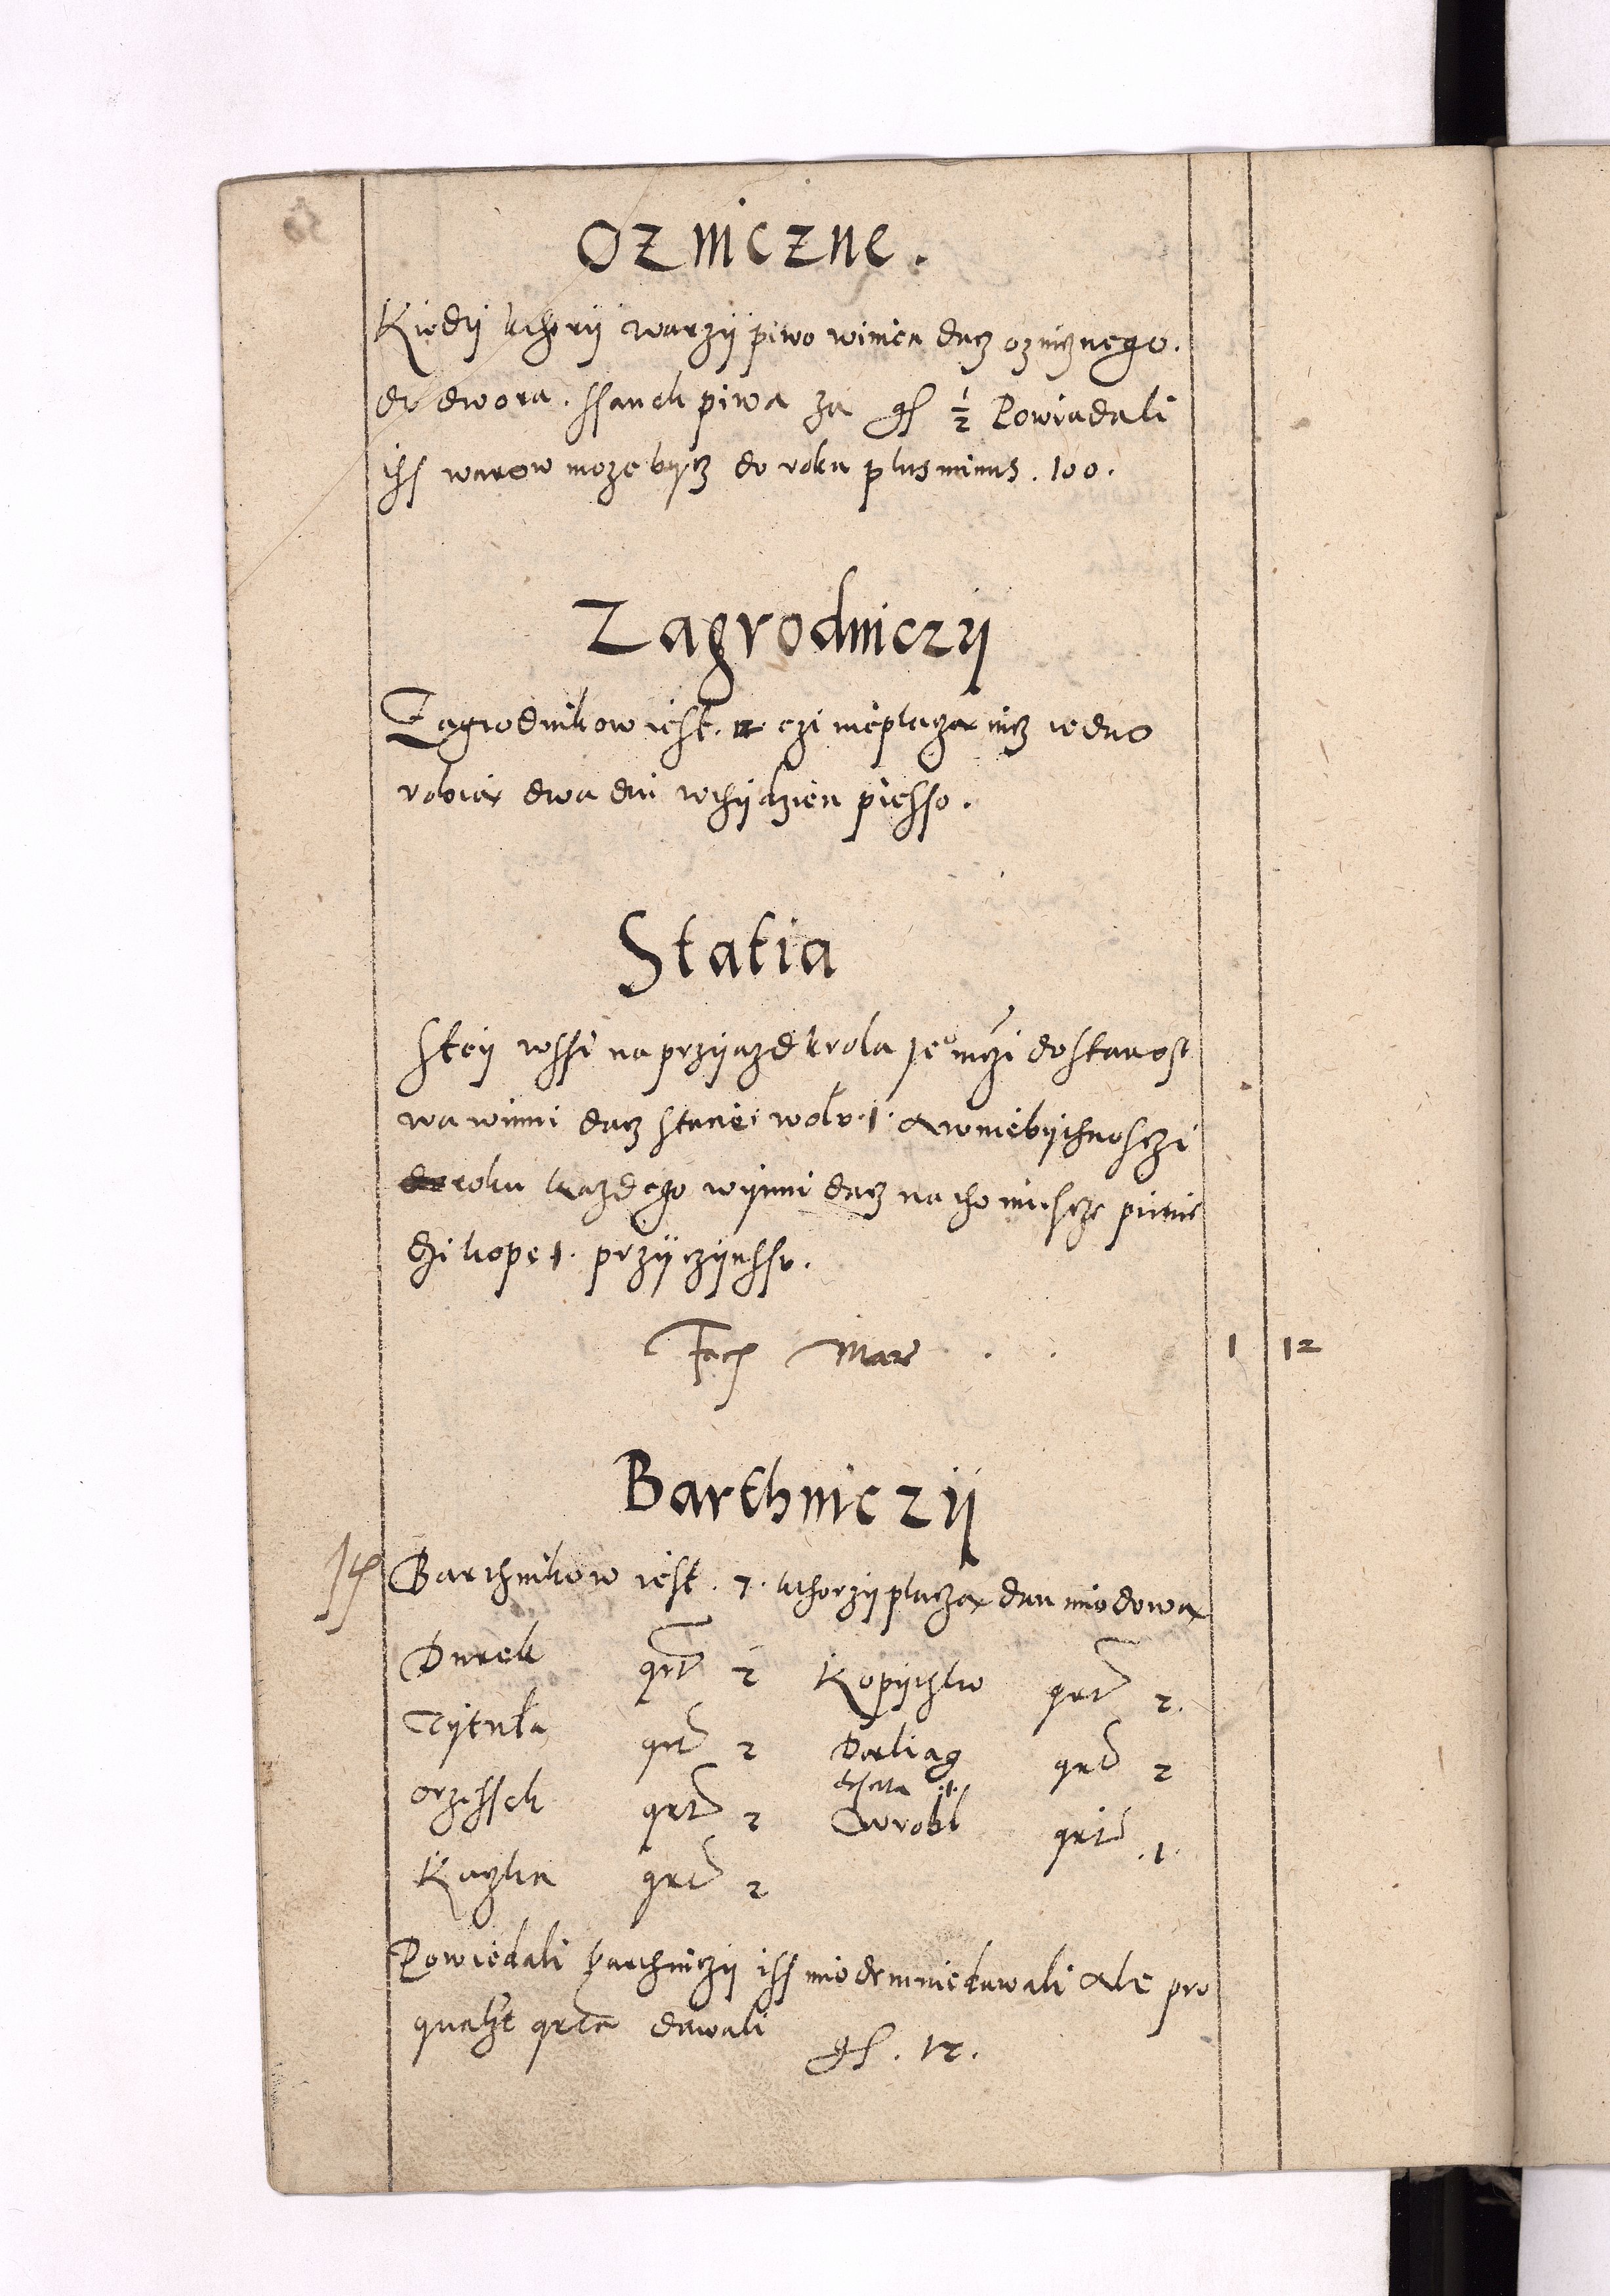 Ozniczne.
Kiedÿ kthorÿ warzÿ piwo winien dacz oznicznego.
do dwora. ssanek piwa za gs ½ Powiadali
iss warow moze bycz do roku plus minus. 100.
Zagrodniczÿ
Zagrodnikow iest. czi nieplacza nicz iedno
robia dwa dni wthÿdzien piesso.
Statia
Steÿ wssi na przÿiazd krola Je° mczi do Starost
wa winni dacz stacie wolv. 1. a w niebÿthnosczi
roku kazdego wÿnni dacz na tho miescze pienie
dzi kope 1. przÿ czÿnssv.
Facit Mar 1 12
Barthniczÿ
Barthnikow iest. 7. kthorzÿ placza dan miodowa
Durek qrt 2 Kopÿthko qrt 2.
Tÿtuła qrt 2 Dorliag qrt 2
Orzessek qrt 2 Wrobl qrt .1.
Kazka qrt 2
Powiedali barthniczÿ iss miodem niedawali ale pro
qualt qrta dawali gs. 12.